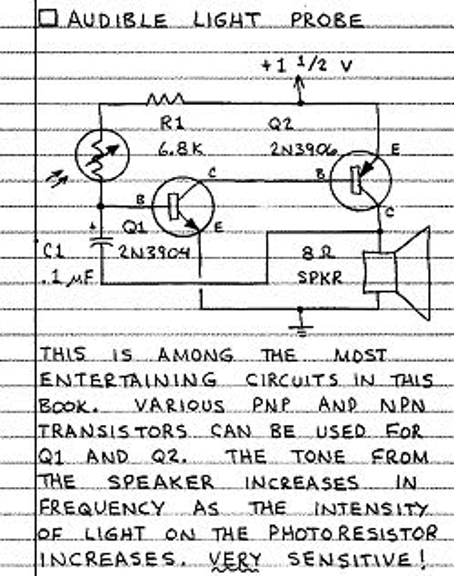 AUDIBLE LIGHT PROBE
+1 1/2 V
R1
6.8K
Q2
2N3906
E
B
C
C
B
E
Q1
2N3904
+
C1
.1 µF
8 Ω
SPKR
THIS IS AMONG THE MOST
ENTERTAINING CIRCUITS IN THIS
BOOK. VARIOUS PNP AND NPN
TRANSISTORS CAN BE USED FOR
Q1 AND Q2. THE TONE FROM
THE SPEAKER INCREASES IN
FREQUENCY AS THE INTENSITY
OF LIGHT ON THE PHOTORESISTOR
INCREASES. VERY SENSITIVE!